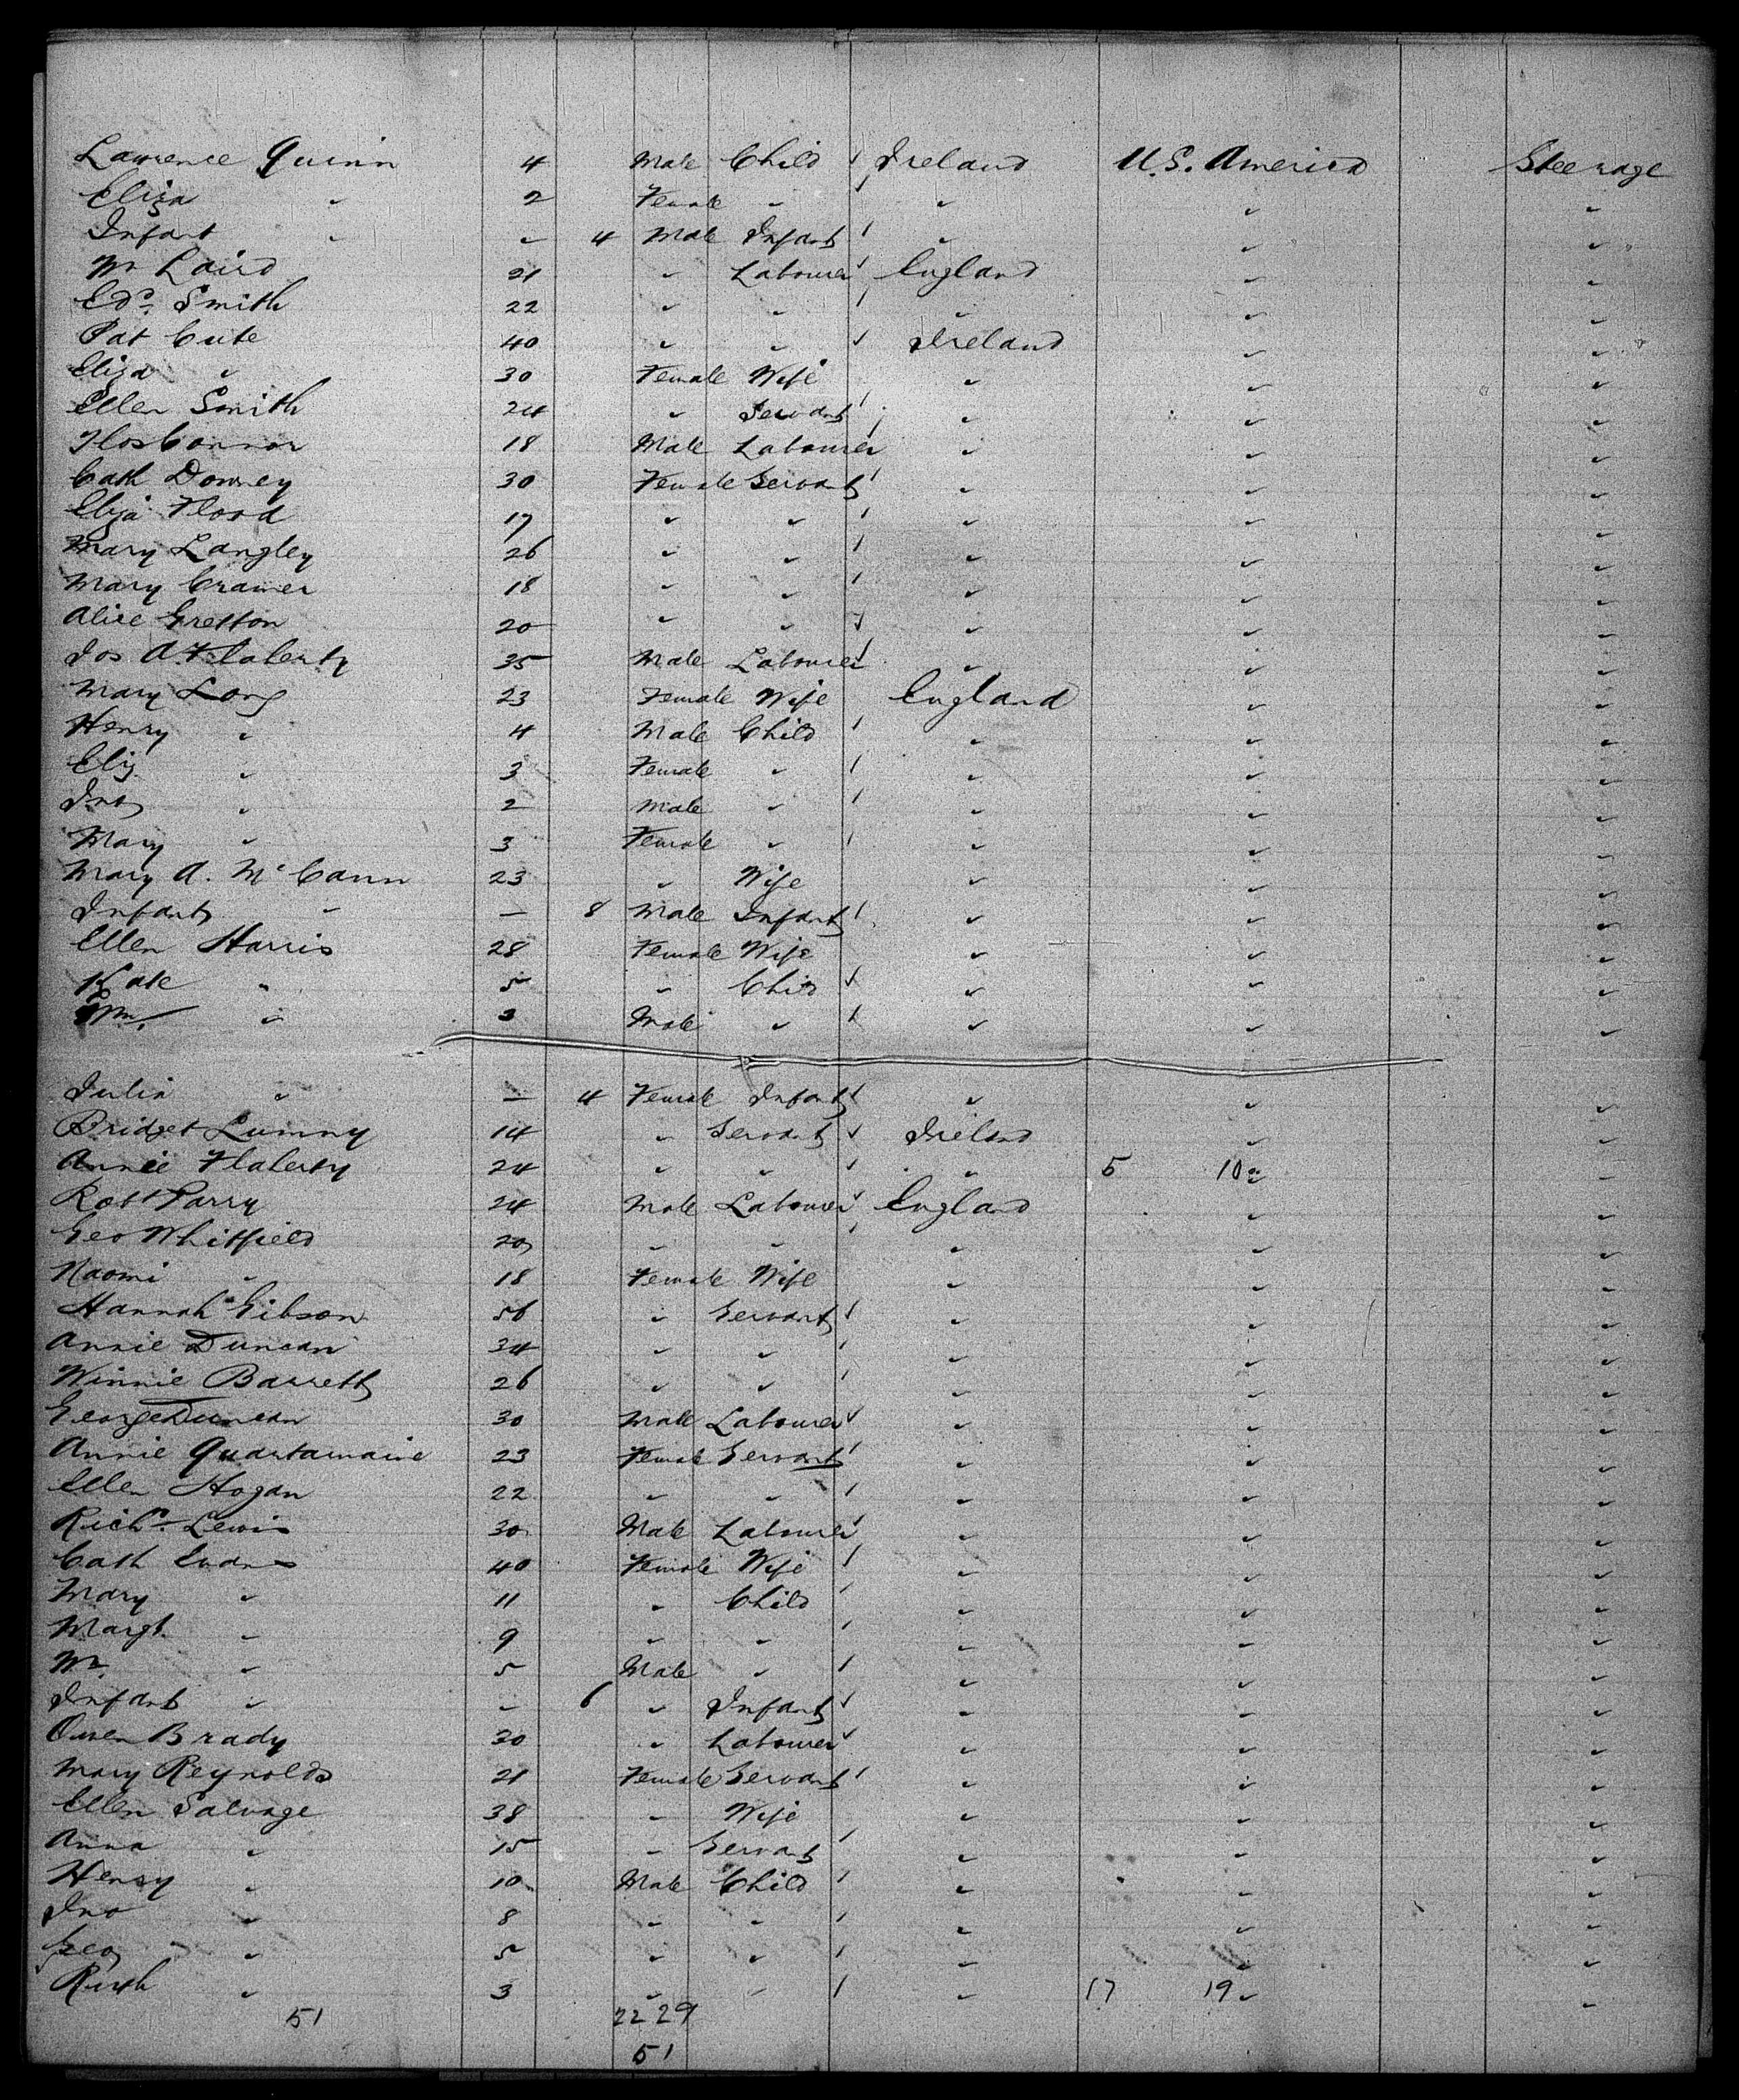 Lawrence Quinn 4 Male Child Ireland U.S. America Steerage
Eliza " 2 Female " " " "
Infant " " 4 Male Infant " " "
Wm Laird 21 " Labourer England " "
Edd. Smith 22 " " " " "
Pat Cute 40 " " Ireland " "
Eliza " 30 Female Wife " " "
Ellen Smith 24 " Servant " " "
Thos Connor 18 Male Labourer " " "
Cath Downey 30 Female Servant " " "
Eliza Flood 17 " " " " "
Mary Langley 26 " " " " "
Mary Cramer 18 " " " " "
Alice Gretton 20 " " " " "
Jos A. Flaherty 35 Male Labourer " " "
Mary Long 23 Female Wife England " "
Henry " 4 Male Child " " "
Eliz " 3 Female " " " "
Jno " 2 Male " " " "
Mary " 3 Female " " " "
Mary A. McCann 23 " Wife " " "
Infant " — 8 Male Infant " " "
Ellen Harris 28 Female Wife " " "
Kate " 5 " Child " " "
Wm. " 3 Male " " " "
Julia " — 4 Female Infant " " "
Bridget Lunny 14 " Servant Ireland " "
Annie Flaherty 24 " " " 5 10 " "
Robt Parry 24 Male Labourer England " "
Geo Whitfield 20 " " " " "
Naomi " 18 Female Wife " " "
Hannah Gibson 56 " Servant " " "
Annie Duncan 34 " " " " "
Winnie Barrett 26 " " " " "
George Duncan 30 Male Labourer " " "
Annie Quartamaine 23 Female Servant " " "
Ellen Hogan 22 " " " " "
Richd. Lewis 30 Male Labourer " " "
Cath Evans 40 Female Wife " " "
Mary " 11 " Child " " "
Margt. " 9 " " " " "
Wm. " 5 Male " " " "
Infant " " 6 " Infant " " "
Owen Brady 30 " Labourer " " "
Mary Reynolds 21 Female Servant " " "
Ellen Salvage 38 " Wife " " "
Anna " 15 " Servant " " "
Henry " 10 Male Child " " "
Jno " 8 " " " " "
Geo " 5 " " " " "
Ruth " 3 " " " 17 19 " "
51 22 29
51